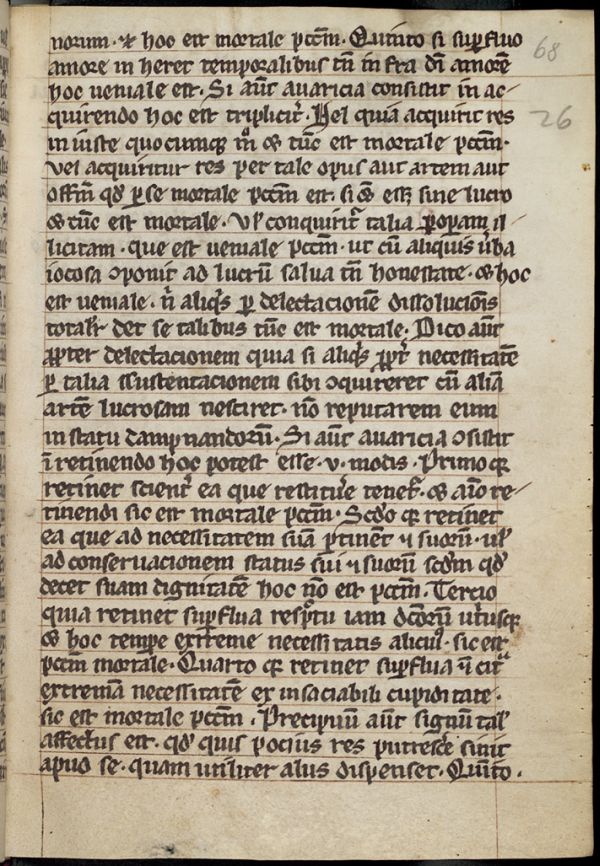 norum · ⁊ hoc est mortale pctm̄ · Quinto si suꝑfluo
amore inheret temporalibus tn̄ infra dī amorē
hoc veniale est · Si aūt avaricia consistit in ac-
quirendo hoc est triplicit̄ · Vel quia acquirit res
iniuste quocumqꝫ mº et tūc est mortale pctm̄ ·
vel acquiritur res per tale opus aut artem aut
offm̄ qd̄ ꝑ se mortale pctm̄ est · sine lucro
et tūc est mortale · Vl̄ conquirit̄ talia ꝑ oꝑam il
licitam · que est veniale pctm̄ · ut cū aliquis v̄ba
iocosa ꝯponit ad lucrū salva tn̄ honestate · et hoc
est veniale · n̄ aliqͥs ꝑ delectacionē dissolucōis
totalr̄ det se talibus tūc est mortale · Dico aūt
ꝓpter delectacionem quia si aliqͥs ꝓpt̄ necessitatē
ꝑ talia sustentacionem sibi ꝯquireret cū aliā
artē lucrosam nesciret · nō reputarem eum
in statu dampnandorū · Si aūt avaricia ꝯsistit
ī retinendo hoc potest esse · v · modis · Primo qꝛ
retinet scient̄ ea que restitu̾e tenet̄ · et aīo re-
tinendi sic est mortale pctm̄ · Scd̄o qꝛ retinet
ea que ad necessitatem suā ꝑtinēt ⁊ suorū · vl̄
ad conservacionem status sui ⁊ suorū scd̄m qd̄
decet suam dignitatē hoc nō est pctm̄ · Tercio
quia retinet suꝑflua respc̄tu iam dc̄orū utriusqꝫ
et hoc tempe extreme necessitatis alicuiꝰ · sic est
pctm̄ mortale · Quarto qꝛ retinet suꝑflua n̄ citᵃ
extremā necessitatē ex insaciabili cupiditate ·
sic est mortale pctm̄ · Precipuū aūt signū tal̄
affectus est · qd̄ quis pocius res putresc̾e sinit
apud se · quam utiliter aliis dispenset · Quīto ·
68
26